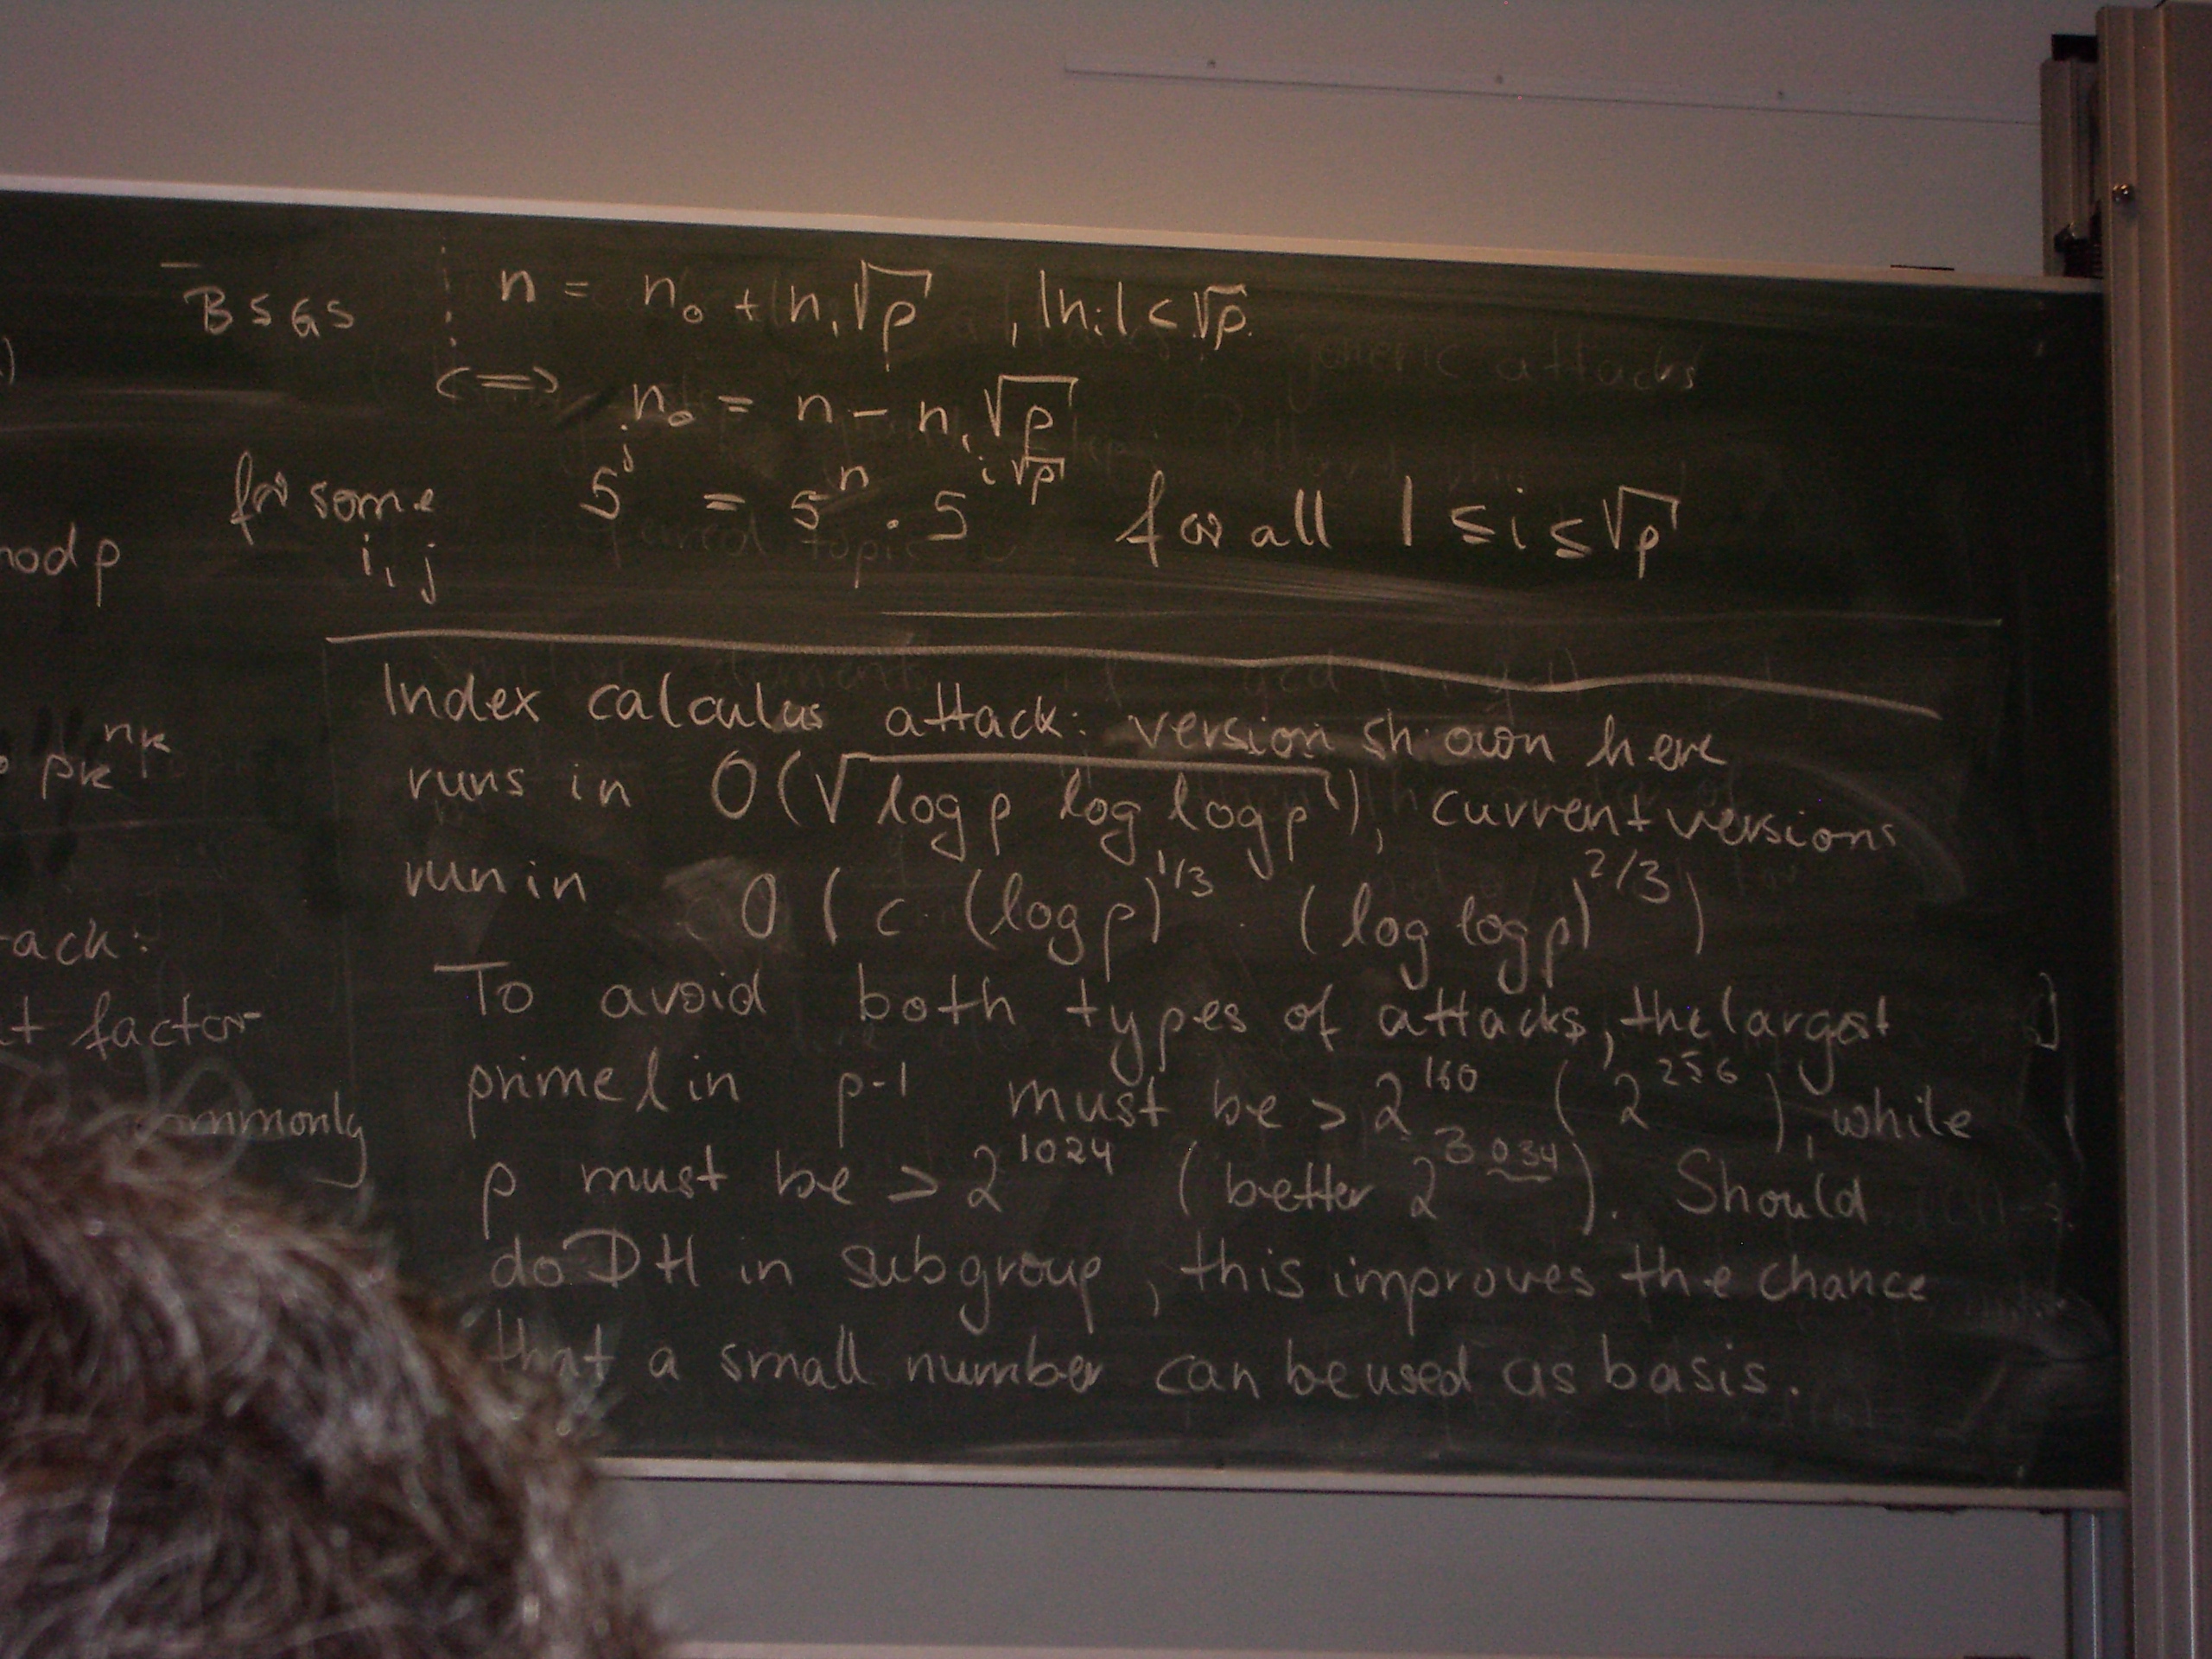 BSGS n = n₀ + n₁√p , |nᵢ| < √p
<=> n₀ = n - n₁√p
for some i, j 5^j = 5^n · 5^(i√p) for all 1 ≤ i ≤ √p
mod p
Index calculus attack: version shown here
pk^nk
runs in O(√(log p log log p)), current versions
run in O(c · (log p)^1/3 · (log log p)^2/3)
ack:
To avoid both types of attacks, the largest
t factor
prime l in p-1 must be > 2^160 (2^256), while
mmonly
p must be > 2^1024 (better 2^3034). Should
do DH in subgroup, this improves the chance
that a small number can be used as basis.